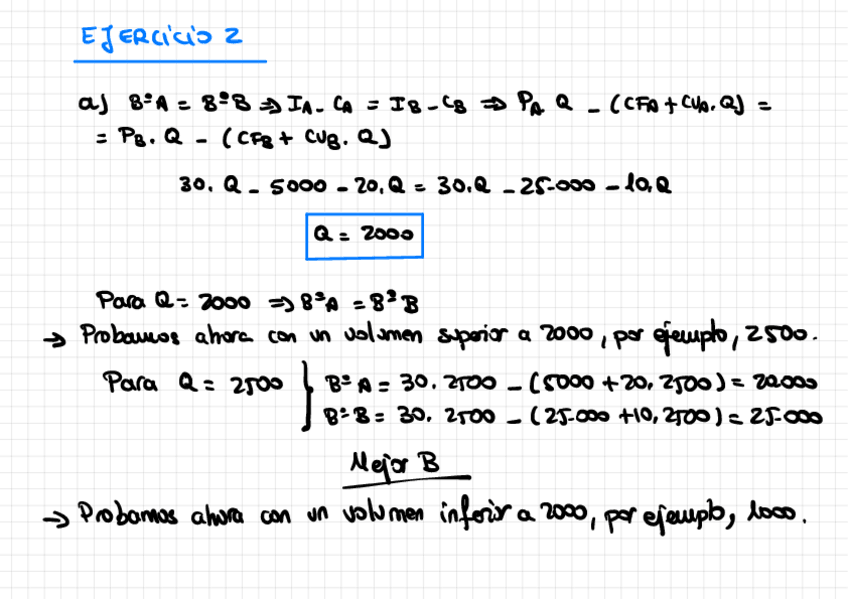 EJERCICIO 2
a) BºA = BºB ⇒ IA - CA = IB - CB ⇒ PA. Q - (CFA + CVA. Q) =
= PB. Q - (CFB + CVB. Q)
30. Q - 5000 - 20. Q = 30.Q - 25.000 - 10.Q
Q = 2000
Para Q = 2000 ⇒ BºA = BºB
→ Probamos ahora con un volumen superior a 2000, por ejemplo, 2500.
Para Q = 2500 } BºA = 30. 2500 - (5000 + 20. 2500) = 20.000
BºB = 30. 2500 - (25.000 + 10. 2500) = 25.000
Mejor B
→ Probamos ahora con un volumen inferior a 2000, por ejemplo, 1000.